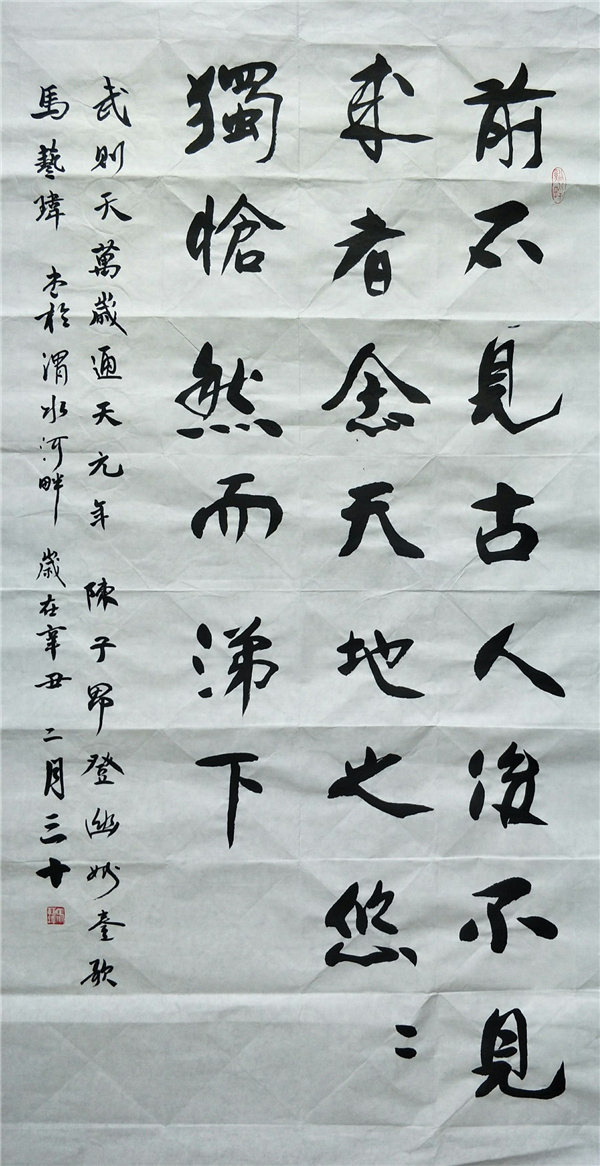 前不見古人後不見
来者念天地之悠〻
獨愴然而涕下
武則天萬歲通天元年 陳子昂登幽州臺歌
馬藝瑋 书於渭水河畔 歲在辛丑 二月三十